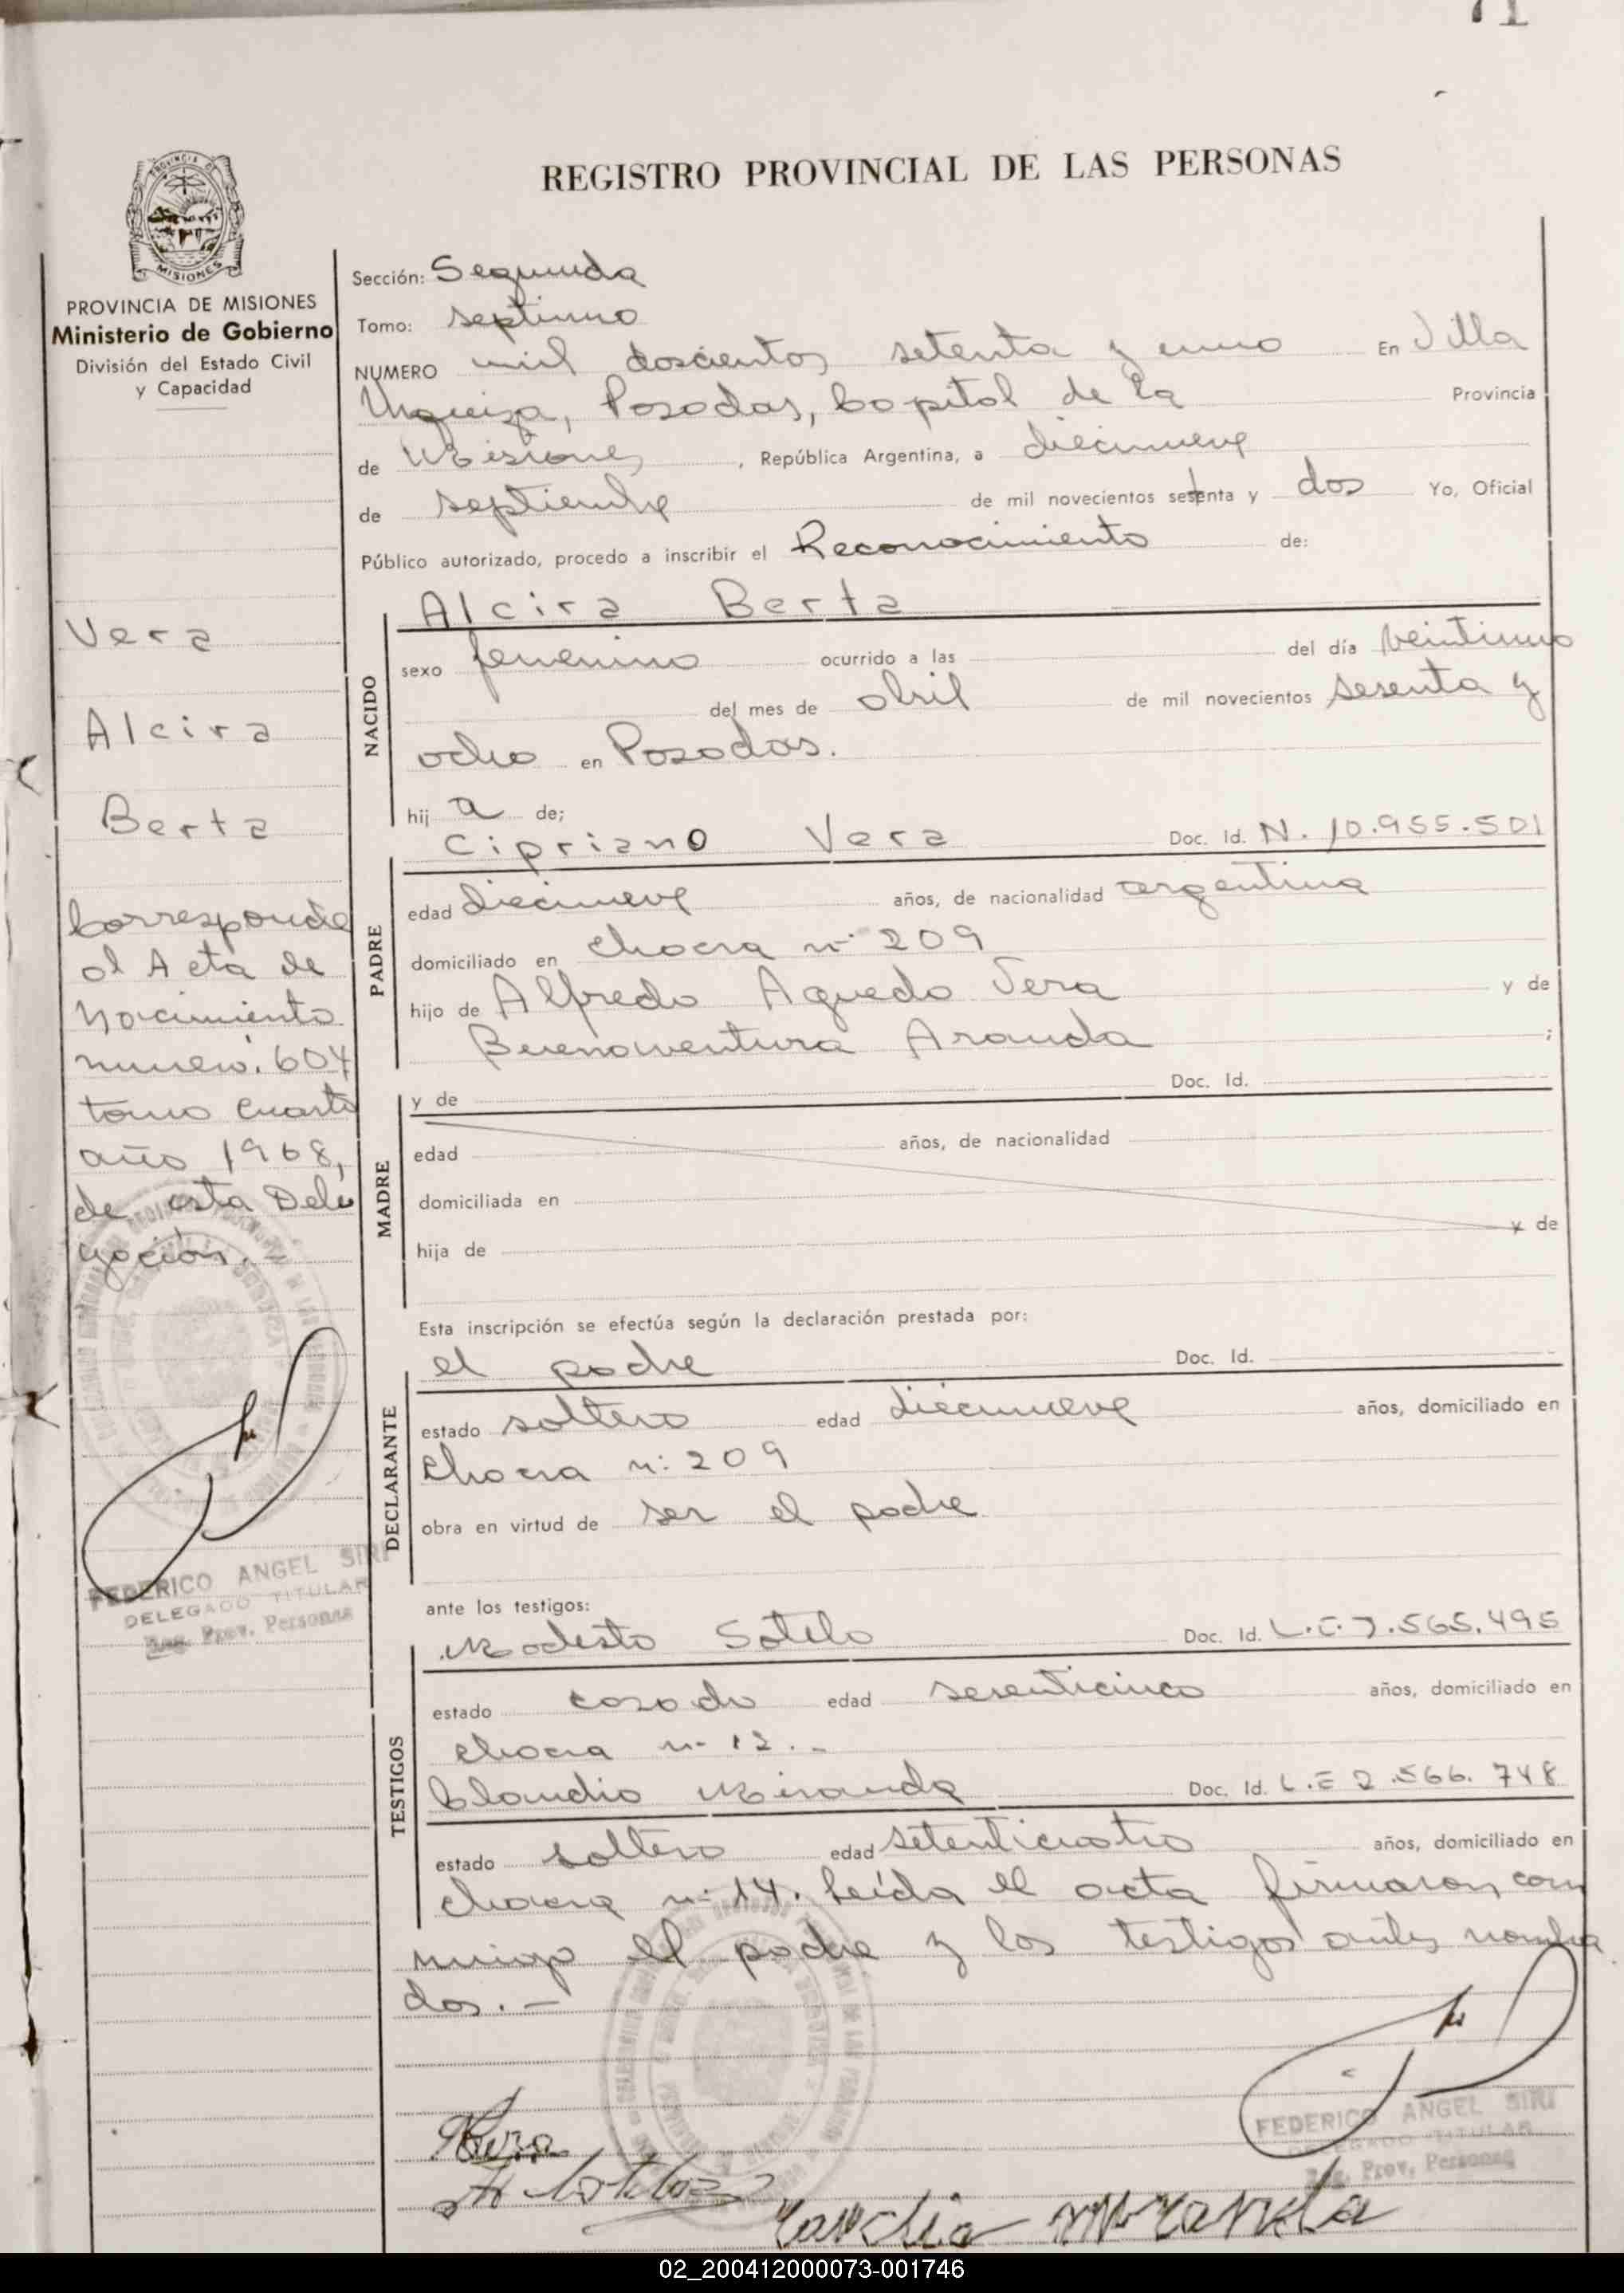 71
REGISTRO PROVINCIAL DE LAS PERSONAS
PROVINCIA DE MISIONES
Ministerio de Gobierno
División del Estado Civil
y Capacidad
Vera
Alcira
Berta
Corresponde
al Acta de
Nacimiento
numero. 604
tomo cuarto
año 1968,
de esta Dele
gación.-
FEDERICO ANGEL SIRI
DELEGADO TITULAR
Reg. Prov. Personas
Sección: Segunda
Tomo: septimo
NUMERO mil doscientos setenta y uno En Villa
Urquiza, Posadas, Capital de la Provincia
de Misiones, República Argentina, a diecinueve
de septiembre de mil novecientos setenta y dos Yo, Oficial
Público autorizado, procedo a inscribir el Reconocimiento de:
NACIDO
Alcira Berta
sexo femenino ocurrido a las del día veintiuno
del mes de abril de mil novecientos sesenta y
ocho en Posadas.
hij a de;
PADRE
Cipriano Vera Doc. Id. N. 10.955.501
edad diecinueve años, de nacionalidad argentina
domiciliado en chacra nº 209
hijo de Alfredo Aguedo Vera y de
Buenaventura Aranda ;
MADRE
y de Doc. Id.
edad años, de nacionalidad
domiciliada en
hija de y de
Esta inscripción se efectúa según la declaración prestada por:
DECLARANTE
el padre Doc. Id.
estado soltero edad diecinueve años, domiciliado en
Chacra n: 209
obra en virtud de ser el padre
ante los testigos:
TESTIGOS
Modesto Sotelo Doc. Id. L.E. 7.565.495
estado casado edad sesenticinco años, domiciliado en
chacra nº 12.-
Claudio Miranda Doc. Id. L.E 2.566.748
estado soltero edad setenticuatro años, domiciliado en
chacra nº 14. Leída el acta firmaron con
migo el padre y los testigos antes nombra
dos.-
FEDERICO ANGEL SIRI
DELEGADO TITULAR
Reg. Prov. Personas
02_200412000073-001746